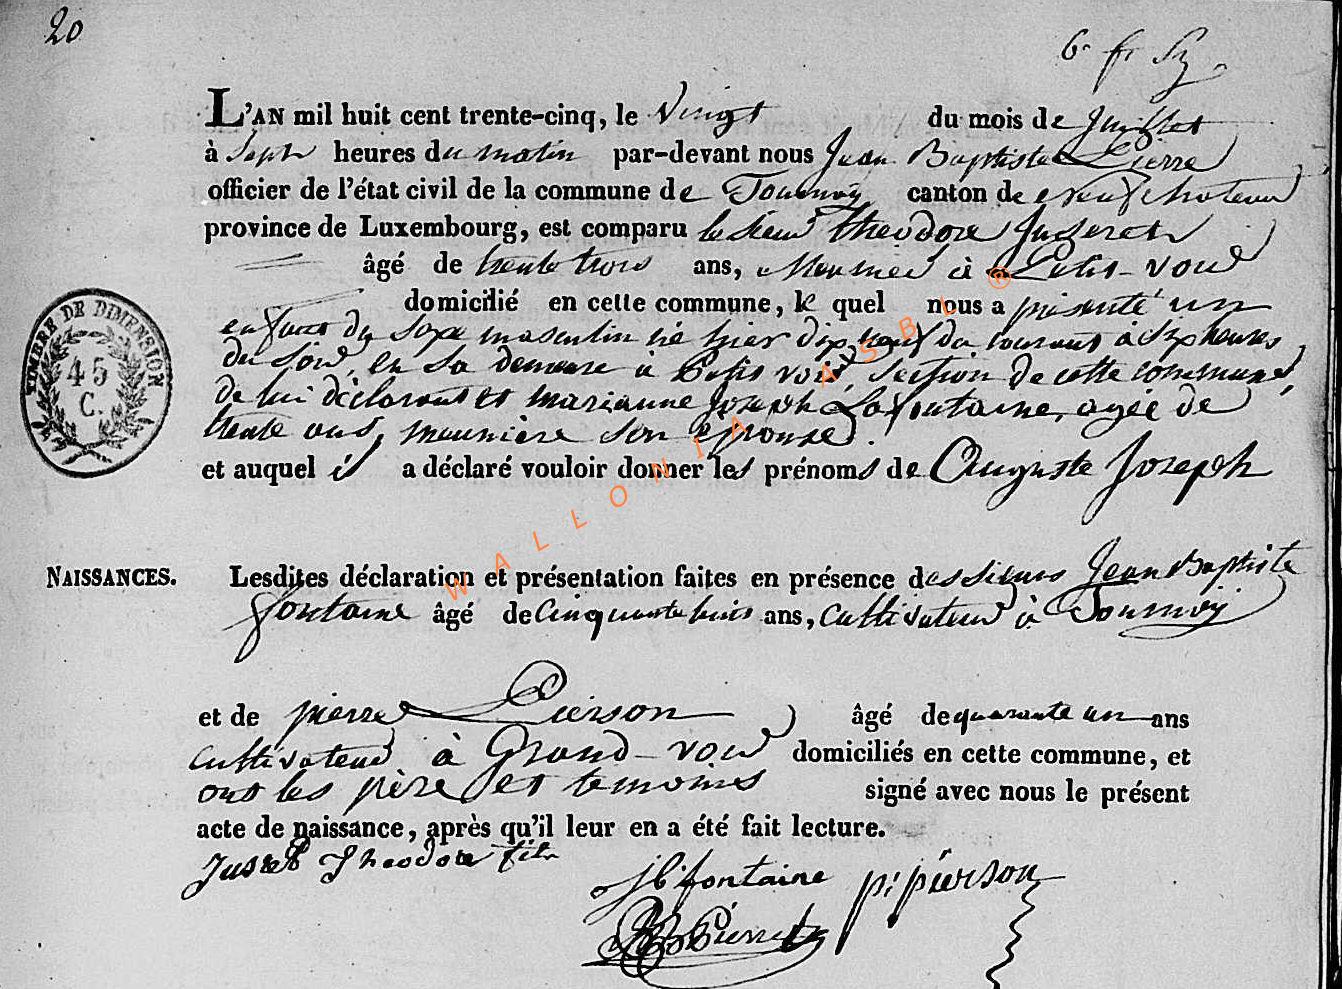 20
6. fr Sz.
L'AN mil huit cent trente-cinq, le Vingt du mois de Juillet
à Sept heures du matin par-devant nous Jean Baptiste Pierre
officier de l'état civil de la commune de Tournay canton de neufchateau
province de Luxembourg, est comparu le sieur Theodore Juseret
âgé de trente trois ans, Meunier à Petit-voir
domicilié en cette commune, le quel nous a présenté un
enfant du sexe masculin né hier dix neuf du courant à six heures
du soir, en sa demeure à Petit voir, section de cette commune,
de lui déclarant et marianne Joseph Lafontaine, agée de
trente ans, meunière son épouse.
et auquel il a déclaré vouloir donner les prénoms de Auguste Joseph
NAISSANCES. Lesdites déclaration et présentation faites en présence des sieurs Jean Baptiste
fontaine âgé de cinquante huit ans, cultivateur à Tournay
et de pierre Pierson âgé de quarante un ans
cultivateur à Grand-voir domiciliés en cette commune, et
ont les père et temoins signé avec nous le présent
acte de naissance, après qu'il leur en a été fait lecture.
Juseret Theodore fils
JB fontaine pr pierson
JB Pierret
TIMBRE DE DIMENSION
45
C.
WALLONIA ASBL ®